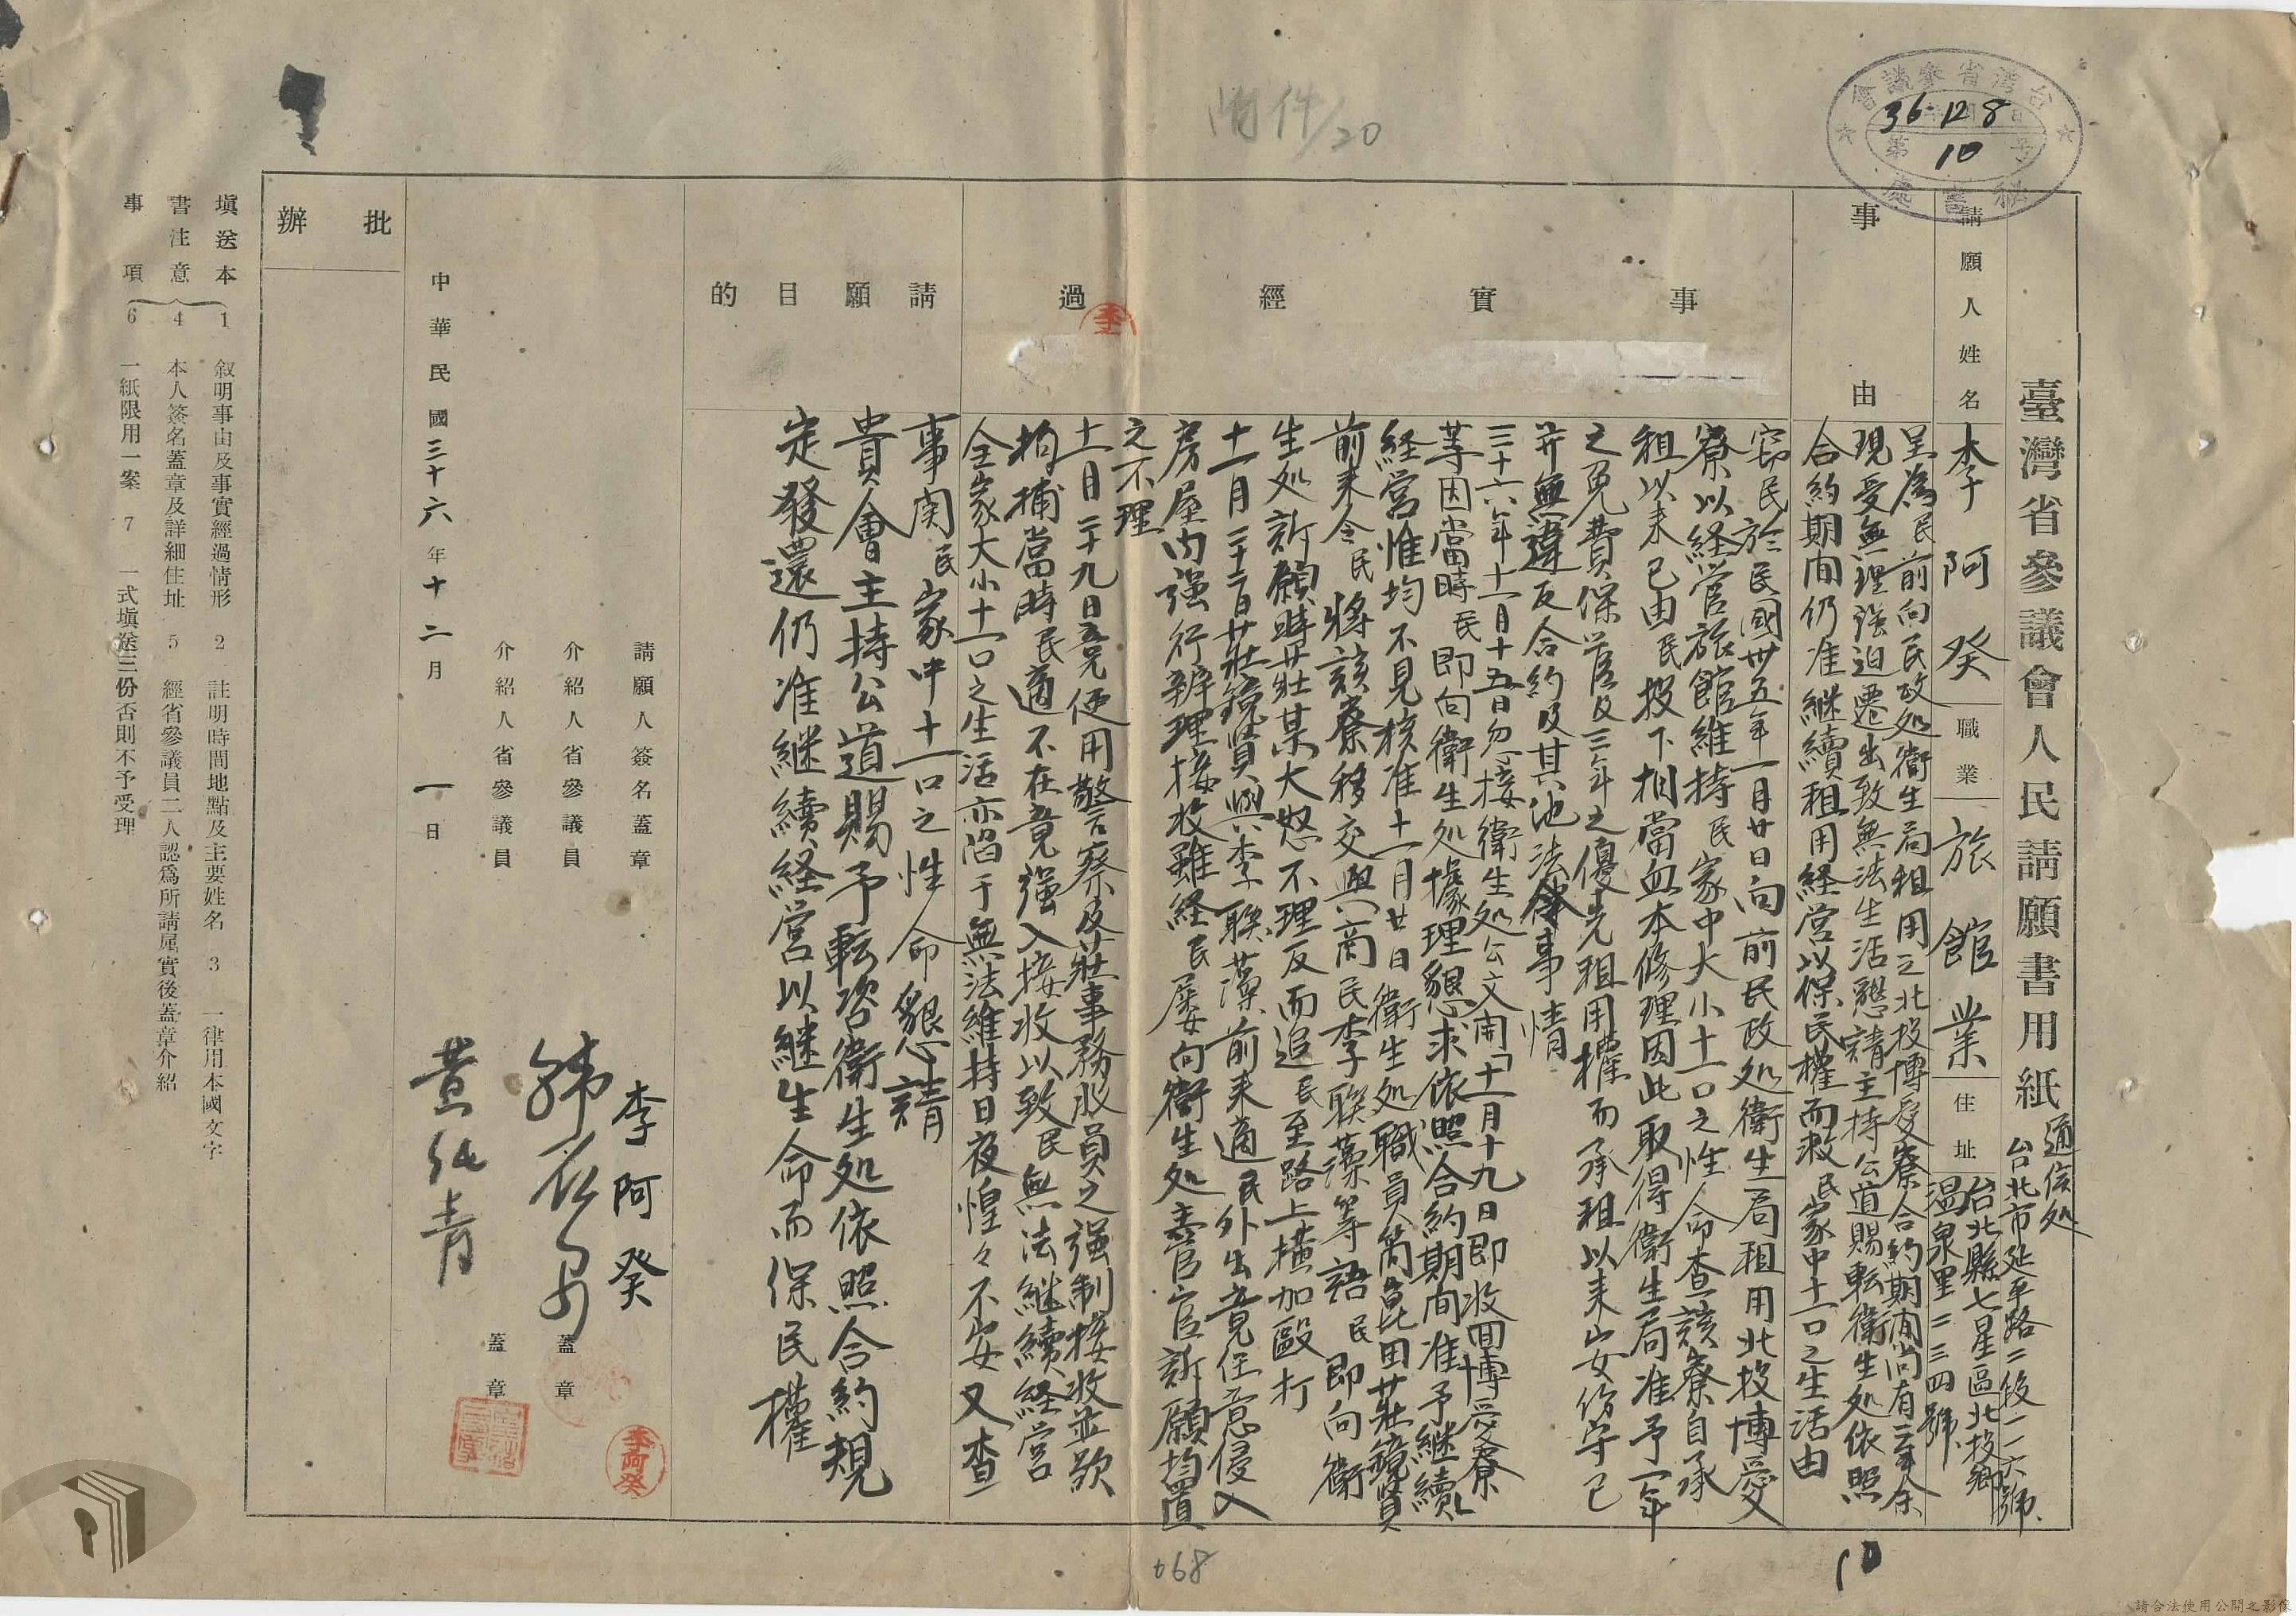 附件/20
台灣省參議會
36.12.8
第 10 号
秘書處
臺灣省參議會人民請願書用紙
通信処
台北市延平路二段一一六號
請願人姓名 李阿癸 職業 旅館業 住址 台北縣七星區北投鄉
温泉里二三四號
事由
呈為民前向民政処衛生局租用之北投博愛寮合約期間尚有二年余
現受無理强迫遷出致無法生活懇請主持公道賜転衛生処依照
合約期间仍准継續租用経営以保民權而救民家中十一口之生活由
事實經過
窃民於民國卅五年一月廿日向前民政処衛生局租用北投博愛
寮以経営旅館維持民家中大小十一口之性命查該寮自承
租以来已由民投下相當血本修理因此取得衛生局准予一年
之免費保管及三年之優先租用權而承租以来安份守己
并無違反合約及其他法律事情
三十六年十一月十五日忽接衛生処公文開「十一月十九日即收回博愛寮
等因當時民即向衛生処據理懇求依照合約期间准予継續
経営惟均不見核准十一月廿日衛生処職員简昆田莊鏡賢
前来令民將該寮移交與商民李联藻等語民即向衛
生処訴願時莊某大怒不理反而追民至路上橫加毆打
十一月二十六日莊鏡賢與李联藻前来適民外出竟任意侵入
房屋内强行辦理接收雖経民屡向衛生処長官訴願均置
之不理
十一月二十九日竟使用警察及莊事務股員之强制接收並欲
拘捕當時民適不在竟强入接收以致民無法継續経営
全家大小十一口之生活亦陷于無法維持日夜惶々不安又查
請願目的
事関民家中十一口之性命懇請
貴會主持公道賜予転咨衛生処依照合約規
定發還仍准継續経営以継生命而保民權
請願人簽名蓋章 李阿癸
介紹人省參議員 蓋章
介紹人省參議員 黄純青 蓋章
李阿癸
中華民國三十六年十二月一日
批辦
填送本書注意事項
1 叙明事由及事實經過情形 2 註明時間地點及主要姓名 3 一律用本國文字
4 本人簽名蓋章及詳細住址 5 經省參議員二人認爲所請屬實後蓋章介紹
6 一紙限用一案 7 一式填送三份否則不予受理
068
10
請合法使用公開之影像